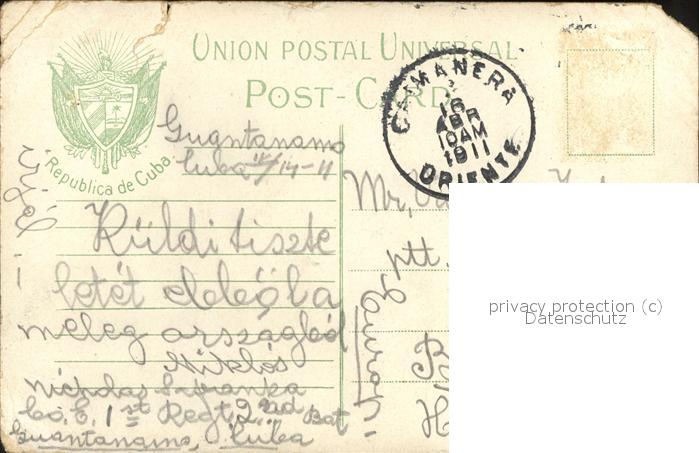 UNION POSTAL UNIVERSAL
POST-CARD
Republica de Cuba
CAIMANERA
16
ABR
10AM
1911
ORIENTE
Guantanamo
Cuba 4/14-11
irjál
Küldi tiszte
letét ebből a
meleg országból
Miklós
Nicholas
Co. E. 1st Regt 2nd Bat
Guantanamo, Cuba
Mr.
ptt.
B
H
privacy protection (c)
Datenschutz